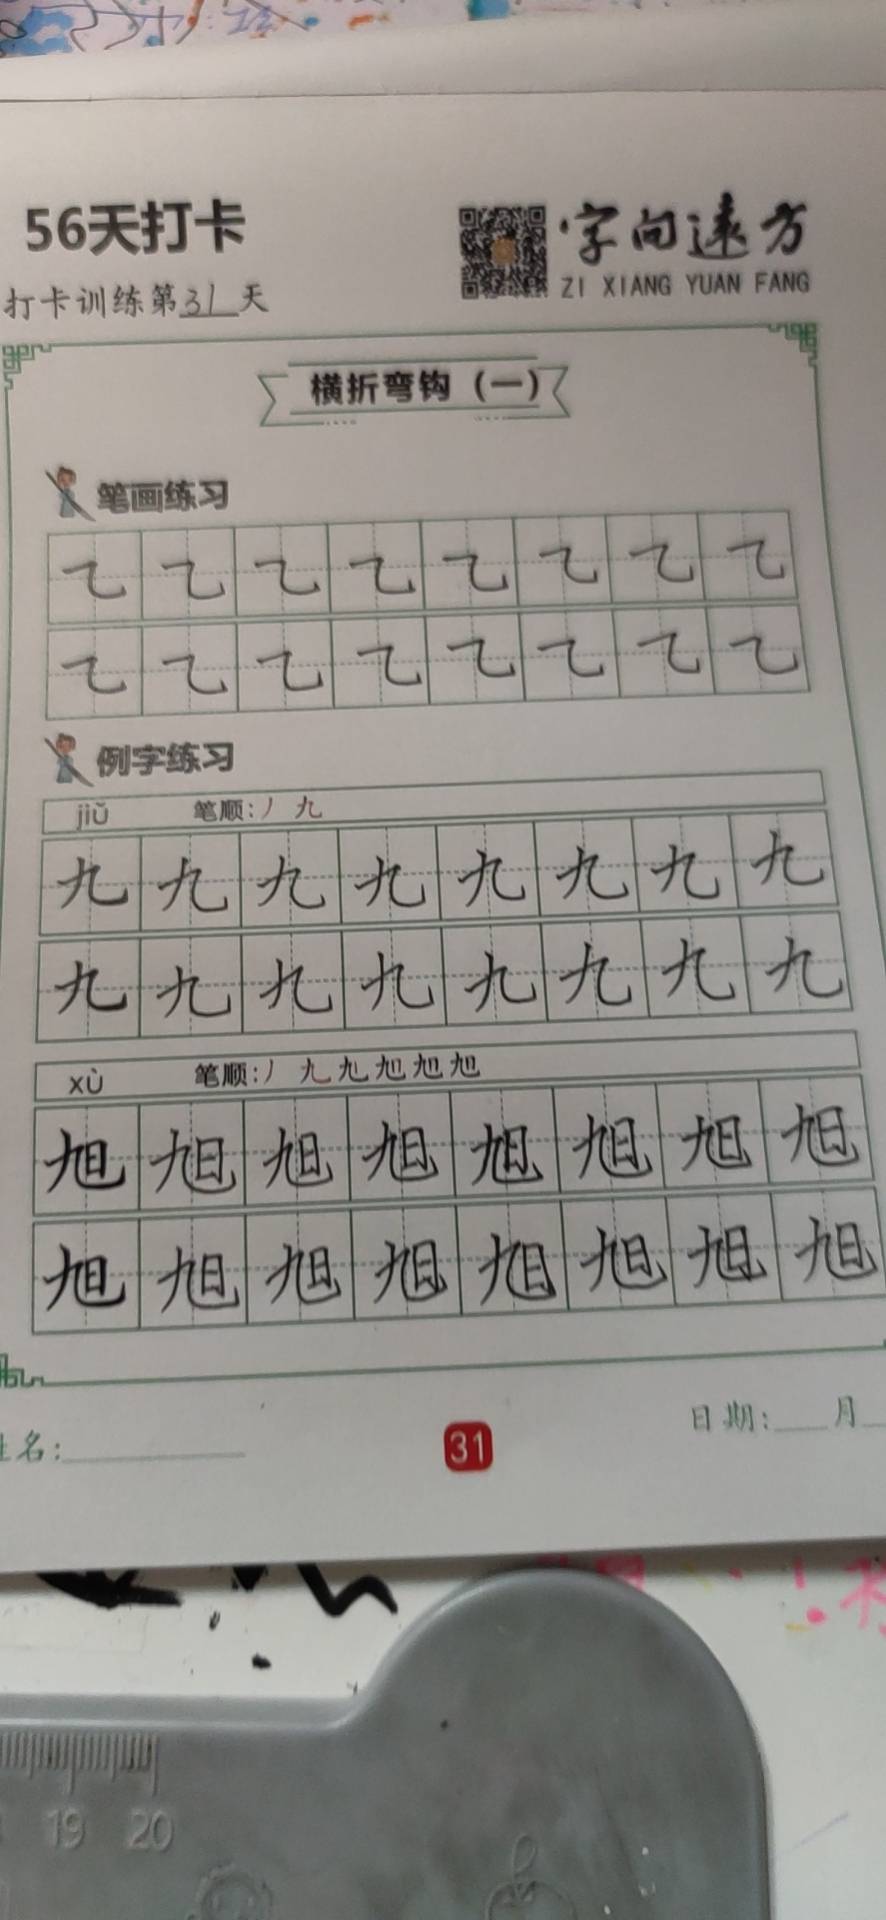 56天打卡
字向远方
ZI XIANG YUAN FANG
打卡训练第31天
横折弯钩（一）
笔画练习
㇈ ㇈ ㇈ ㇈ ㇈ ㇈ ㇈ ㇈
㇈ ㇈ ㇈ ㇈ ㇈ ㇈ ㇈ ㇈
例字练习
jiǔ 笔顺:丿 九
九 九 九 九 九 九 九 九
九 九 九 九 九 九 九 九
xù 笔顺:丿 九 旭 旭 旭 旭
旭 旭 旭 旭 旭 旭 旭 旭
旭 旭 旭 旭 旭 旭 旭 旭
姓名:
日期: 月
31
19 20